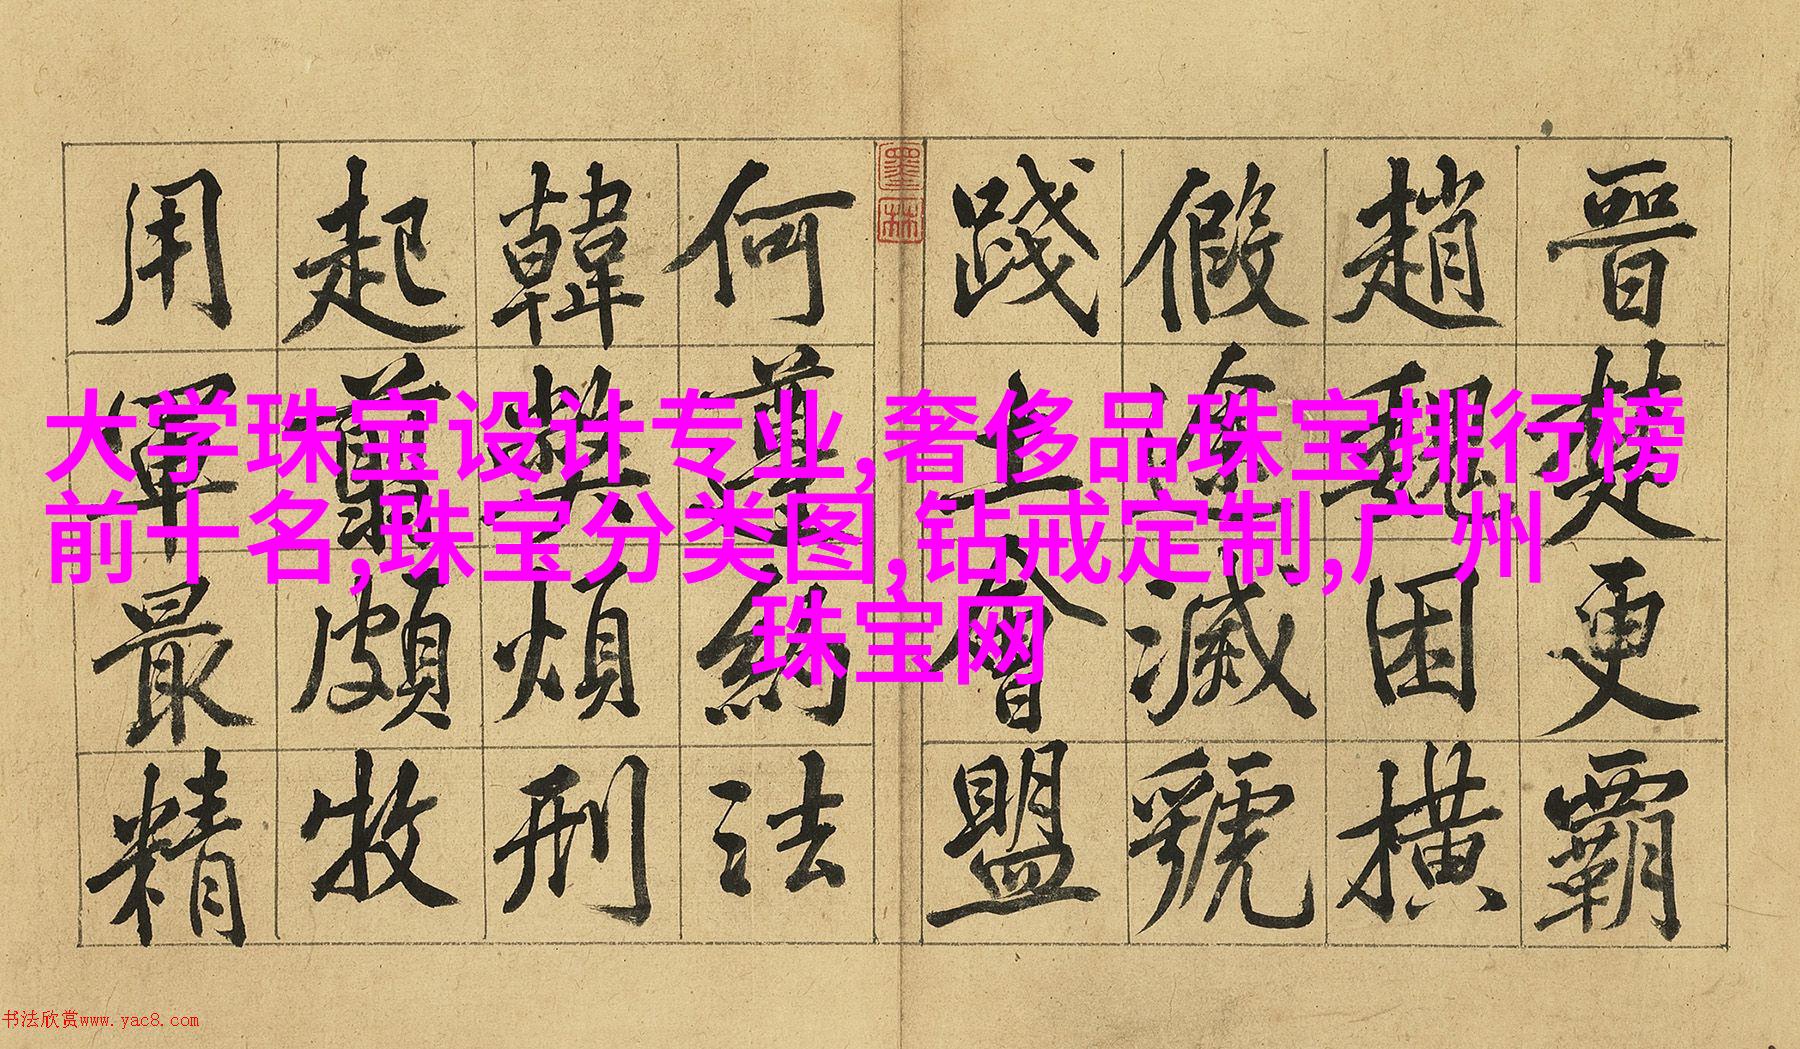 晉楚更霸
趙魏困橫
假途滅虢
踐土會盟
墨林
何遵約法
韓弊煩刑
起翦頗牧
用軍最精
大学珠宝设计专业,奢侈品珠宝排行榜
前十名,珠宝分类图,钻戒定制,广州
珠宝网
书法欣赏www.yac8.com